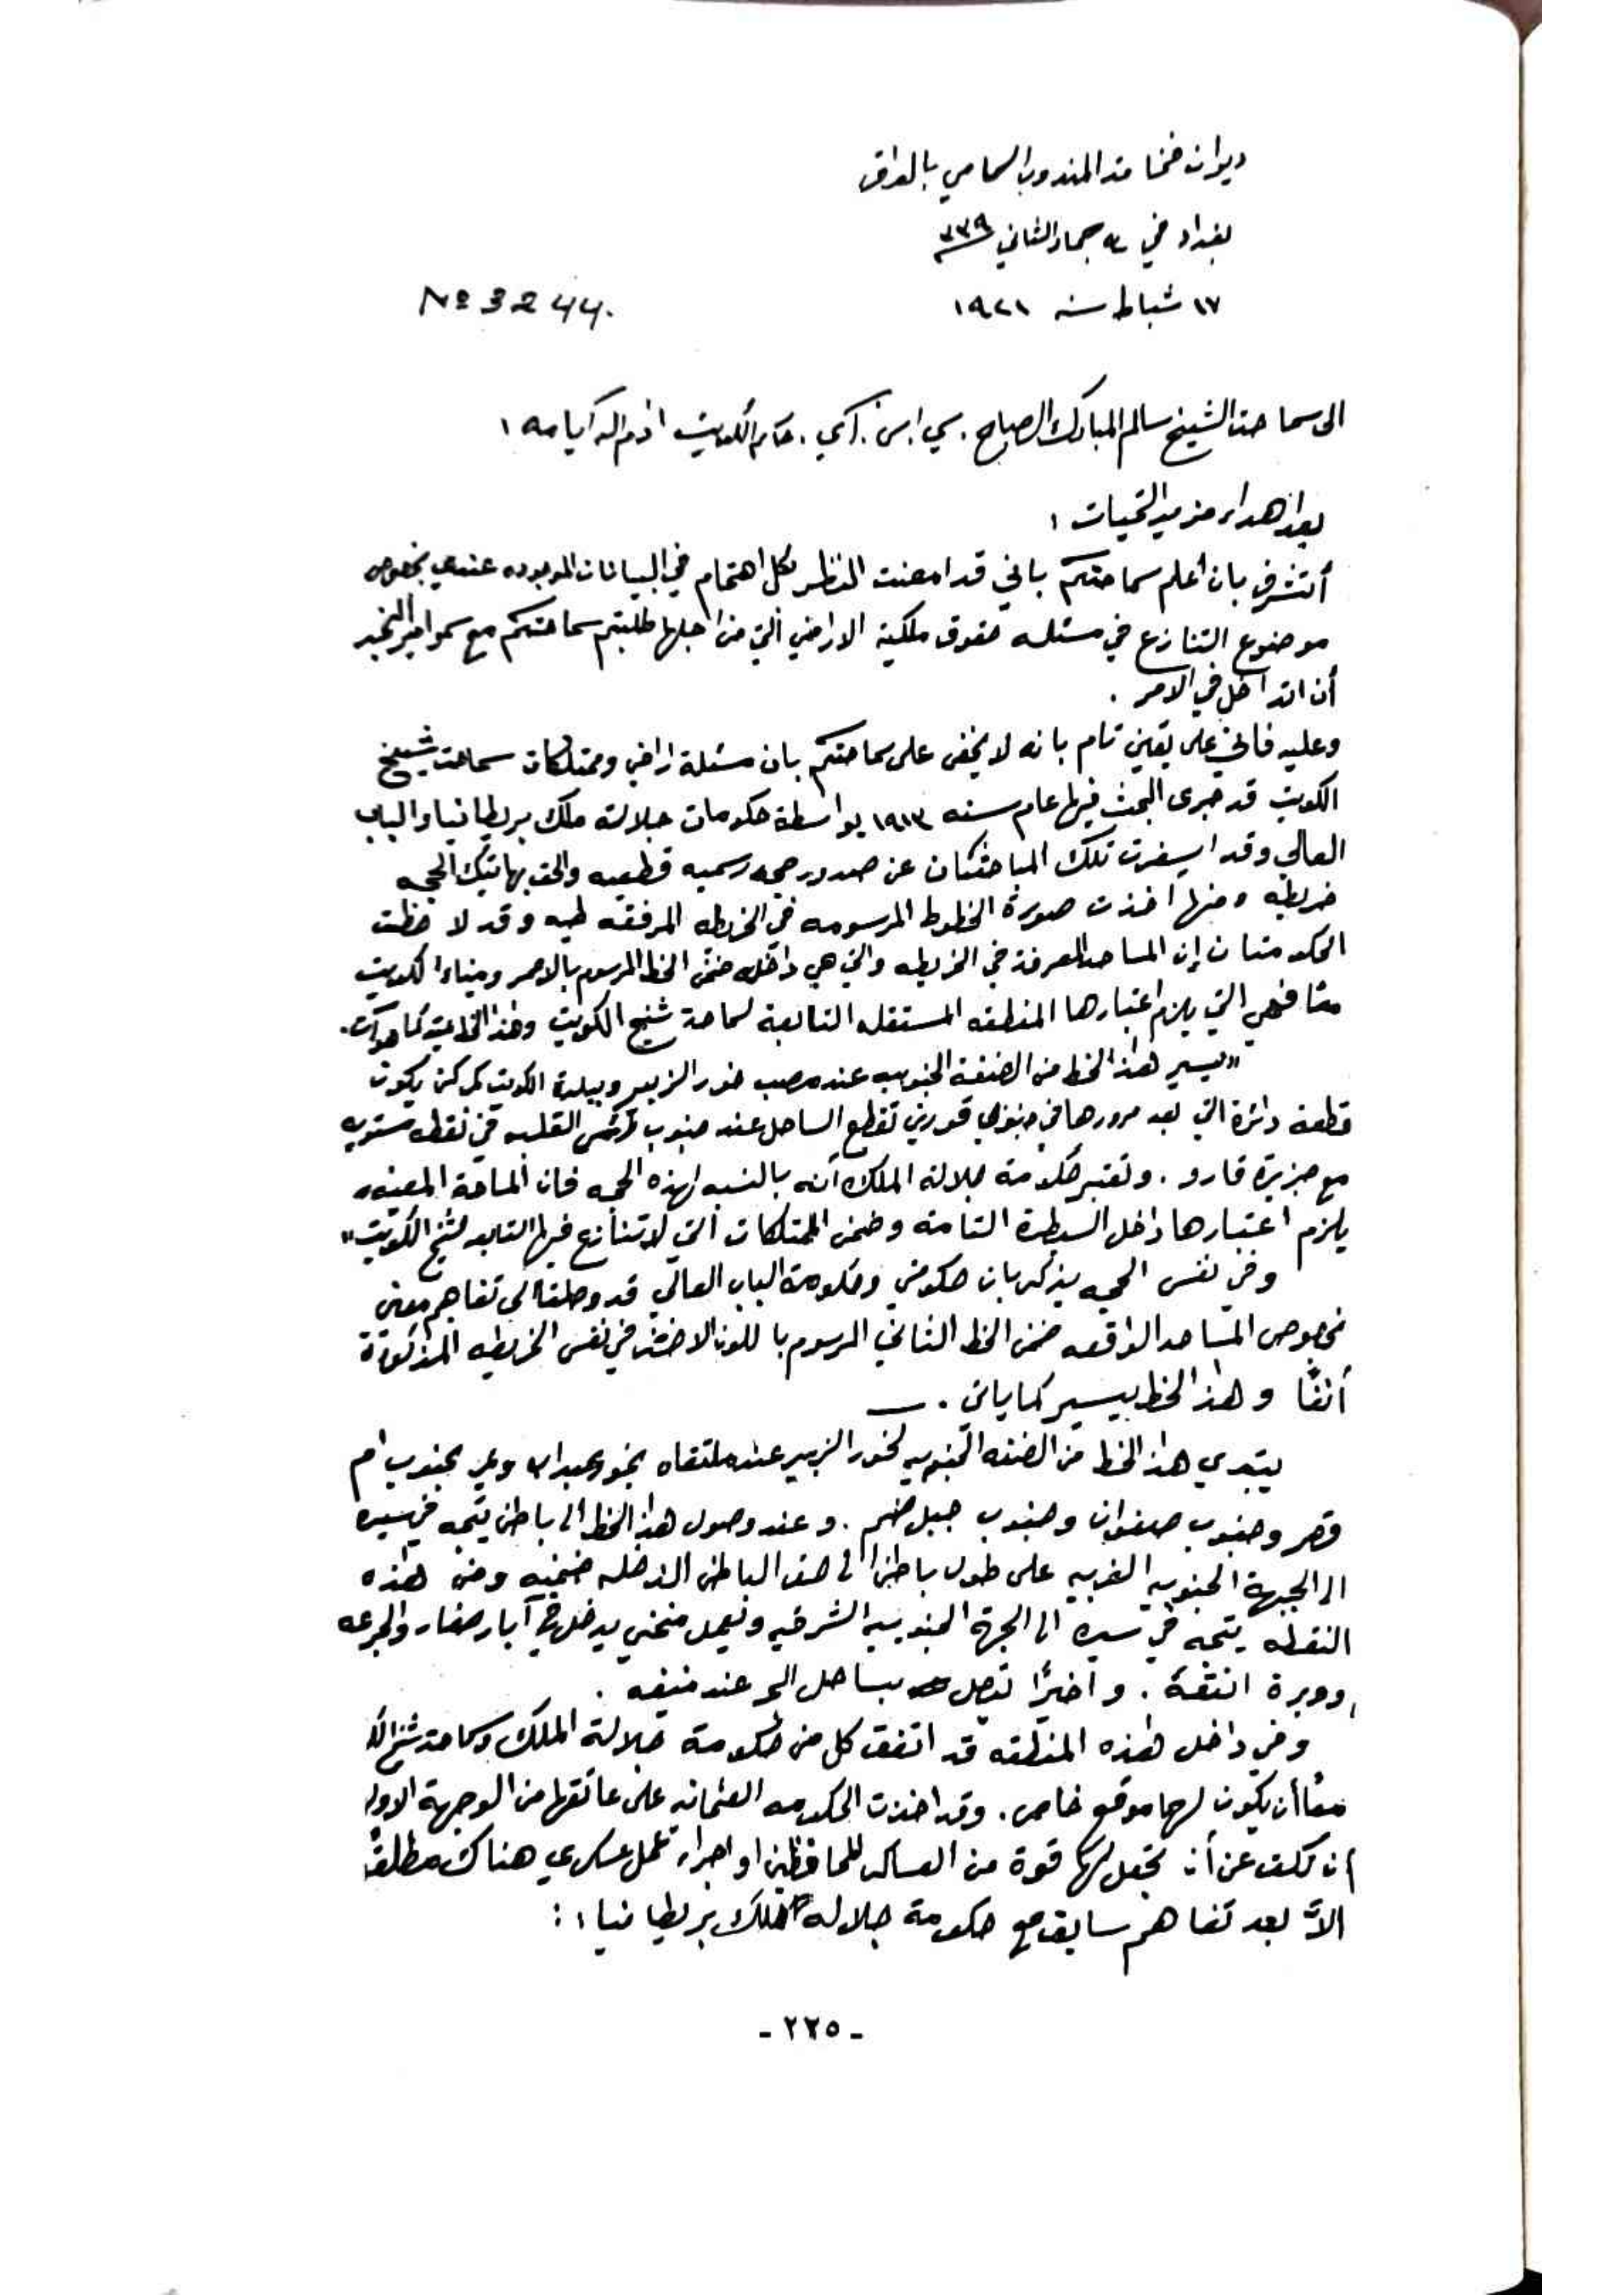 ديوان فخامة المندوب السامي بالعراق
بغداد في جماد الثاني ٣٣٩
١٧ شباط سنه ١٩٢١
No 3244.
الى سماحة الشيخ سالم المبارك الصباح . سي . اس . آي . حاكم الكويت ادام الله ايامه ،
بعد اهداء مزيد التحيات ،
أتشرف بان أعلم سماحتكم باني قد امعنت النظر بكل اهتمام في البيانات الموجوده عندي بخصوص
موضوع التنازع في مسئله حقوق ملكية الاراضي التي من اجلها طلبتم سماحتكم مع سمو امير النجد
أن اتداخل في الامر .
وعليه فاني على يقين تام بانه لا يخفى على سماحتكم بان مسئلة اراضي وممتلكات سماحة شيخ
الكويت قد جرى البحث فيها عام سنه ١٩١٣ بواسطة حكومات جلالة ملك بريطانيا والباب
العالي وقد اسفرت تلك المباحثات عن صدور حجه رسميه قطعيه والحق بهاتيك الحجه
خريطه ومنها اخذت صورة الخطوط المرسومه في الخريطه المرفقه طيه وقد لاحظت
الحكومتان إن المساحه المعرفة في الخريطه والتي هي داخله ضمن الخط المرسوم بالاحمر وميناء الكويت
فهي التي يلزم اعتبارها المنطقه المستقله التابعة لسماحة شيخ الكويت وهذا الخط كما هو آت .
"يسير هذا الخط من الضفة الجنوبيه عند مصب خور الزبير وبلدة الكويت كمركز يكون
قطعة دائرة التي بعد مرورها في جنوبي قورين تقطع الساحل عند جنوب رئس القليه في نقطه مستويه
مع جزيرة قارو . وتعتبر حكومة جلالة الملك أنه بالنسبه لهذه الحجه فان المساحة المعينه
يلزم اعتبارها داخل السيطرة التامه وضمن الممتلكات التي لا تنازع فيها التابعه لشيخ الكويت"
وفي نفس الحجه يذكر بان حكومتي وحكومة الباب العالي قد وصلتا الى تفاهم معين
بخصوص المساحه الواقعه ضمن الخط الثاني المرسوم باللون الاخضر في نفس الخريطه المذكورة
أنفًا وهذا الخط يسير كما ياتي . ـ
يبتدي هذا الخط من الضفه الجنوبيه لخور الزبير عند ملتقاه بخور عبدالله ويمر بجنوب ام
قصر وجنوب صفوان وجنوب جبل . وعند وصول هذا الخط الى باطن يتجه في سيره
الى الجهة الجنوبيه الغربيه على طول باطن الى حفر الباطن الداخله ضمنيه ومن هذه
النقطه يتجه في سيره الى الجهة الجنوبيه الشرقيه ويعمل منحني يدخل في آبار صفار والجرعه
ووبرة انتقة . واخيرًا تصل بساحل البحر عند منيفه .
وفي داخل هذه المنطقه قد اتفق كل من حكومة جلالة الملك وسماحة شيخ
معًا أن يكون لهما موقع خاص . وقد اخذت الحكومه العثمانيه على عاتقها من الوجهة الاولى
ان تكف عن أن تجعل لها قوة من العساكر للمحافظين او اجراء عمل عسكري هناك مطلقًا
الاّ بعد تفاهم سابق مع حكومة جلاله ملك بريطانيا ، :
- ٢٢٥ -